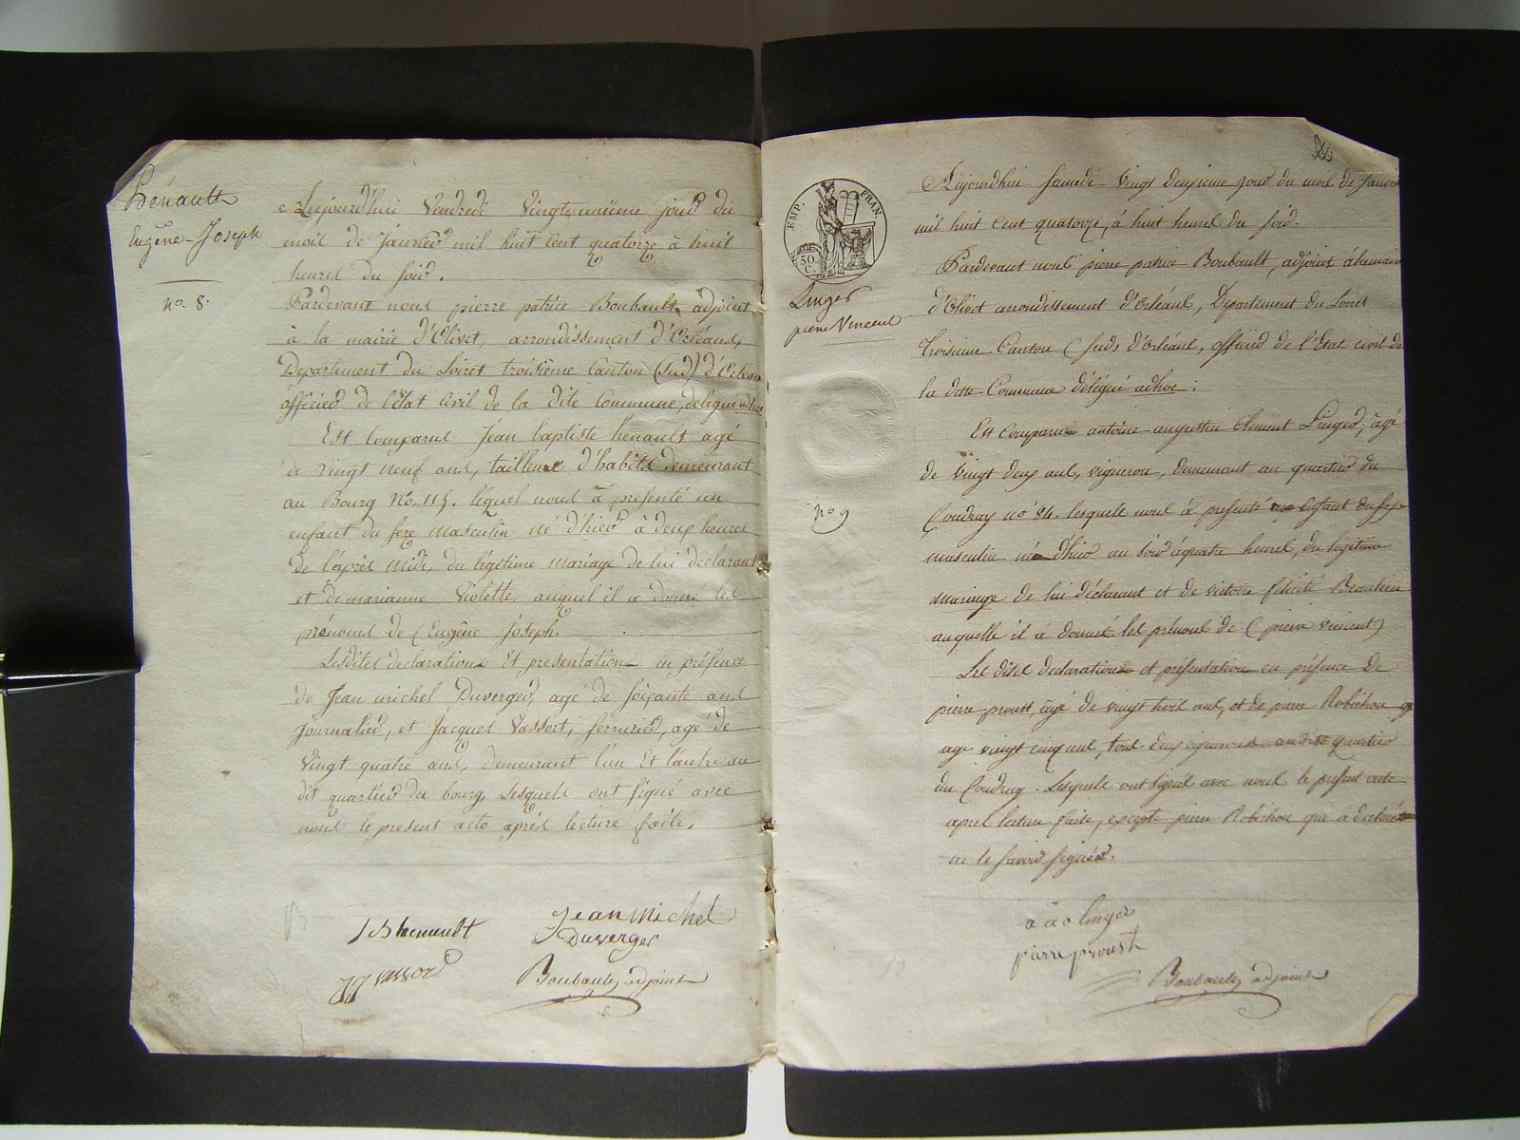 hénault
Eugêne-Joseph
no. 8.
Aujourd'hui Vendredi Vingt-unième jour du
mois de Janvier mil huit cent quatorze à huit
heures du soir.
Pardevant nous pierre patrice Boubault, adjoint
à la mairie d'Olivet, arrondissement d'Orléans,
Département du Loiret troisième Canton (Sud) d'Orléans
officier de l'état Civil de la dite Commune, délégué adhoc
Est Comparus Jéan baptiste henault agé
de vingt neuf ans, tailleur d'habits demeurant
au Bourg No. 115. léquel nous à présenté un
enfant du sexe masculin né d'hier à deux heures
de l'après midi, du légitime mariage de lui déclarant
et de marianne Violette, auquel il a donné les
prénoms de (Eugêne Jóseph.
Lesdites declarations Et presentation en présence
de Jean michel Duverger, agé de soixante ans
Journalier, et Jacques Vassort, serrurier, agé de
Vingt quatre ans, demeurant l'un Et l'autre au
dit quartier du bourg, Lesquels ont signé avec
nous le present acte après lecture faite.
J B henault
Jean Michel
Duverger
JJ vassor
Boubault, adjoint
EMP. FRAN.
50
C.
Linger
pierre Vincent
no 9
Aujourdhui Samedi Vingt Deuxieme jour du mois de Janvier
mil huit Cent quatorze, à huit heures du soir.
Pardevant nous pierre patrice Boubault, adjoint à la mairie
d'Olivet arrondissement d'Orléans, Département du Loiret
troisieme Canton (sud) d'Orléans, officier de l'Etat civil de
la ditte Commune délégué adhoc:
Est Comparu antoine augustin Clément Linger, âgé
de Vingt deux ans, vigneron, demeurant au quartier du
Coudray no 84. lesquels nous à présenté un Enfant du sexe
masculin né d'hier au soir à quatre heures, du legitime
mariage de lui déclarant et de victoire félicité
auquelle il à donné les prénoms de (pierre vincent)
Les dites declarations et présentation en présence de
pierre proust, âgé de vingt trois ans, et de pierre Robichon
age vingt cinq ans, tous deux au dit quartier
du Coudray. Lesquels ont signé avec nous le présent acte
après lecture faite, excepté pierre Robichon qui a déclaré
ne le savoir signer.
a a c linger
pierre proust
Boubault, adjoint